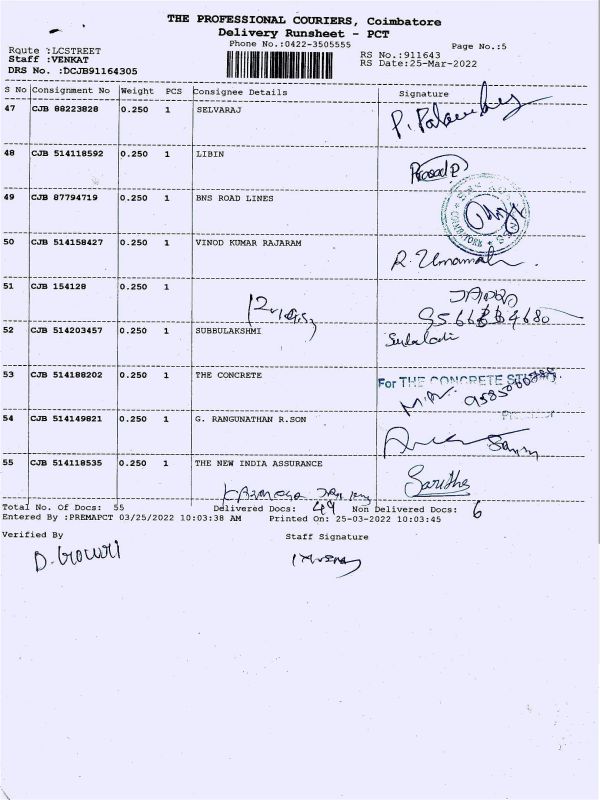 THE PROFESSIONAL COURIERS, Coimbatore
Delivery Runsheet - PCT
Phone No.:0422-3505555
Page No.:5
Route :LCSTREET
RS No.:911643
Staff :VENKAT
RS Date:25-Mar-2022
DRS No. :DCJB91164305
S No Consignment No Weight PCS Consignee Details Signature
47 CJB 88223828 0.250 1 SELVARAJ
48 CJB 514118592 0.250 1 LIBIN
Prasad P
49 CJB 87794719 0.250 1 BNS ROAD LINES
50 CJB 514158427 0.250 1 VINOD KUMAR RAJARAM
R. Umamah
51 CJB 154128 0.250 1
52 CJB 514203457 0.250 1 SUBBULAKSHMI
53 CJB 514188202 0.250 1 THE CONCRETE
For THE CONCRETE
54 CJB 514149821 0.250 1 G. RANGUNATHAN R.SON
55 CJB 514118535 0.250 1 THE NEW INDIA ASSURANCE
Saritha
Total No. Of Docs: 55 Delivered Docs: 49 Non Delivered Docs: 6
Entered By :PREMAPCT 03/25/2022 10:03:38 AM Printed On: 25-03-2022 10:03:45
Verified By Staff Signature
D. Gowri